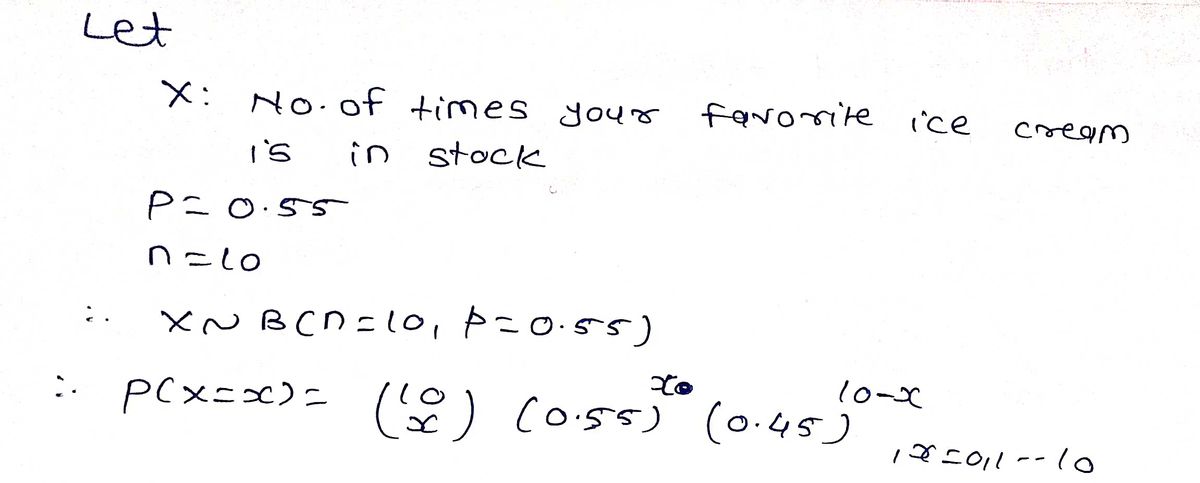 Let
X: No. of times your favorite ice cream
is in stock
P = 0.55
n = 10
∴ X ~ B(n=10, p=0.55)
∴ P(X=x) = (10 x) (0.55)^x (0.45)^10-x , x=0,1--10